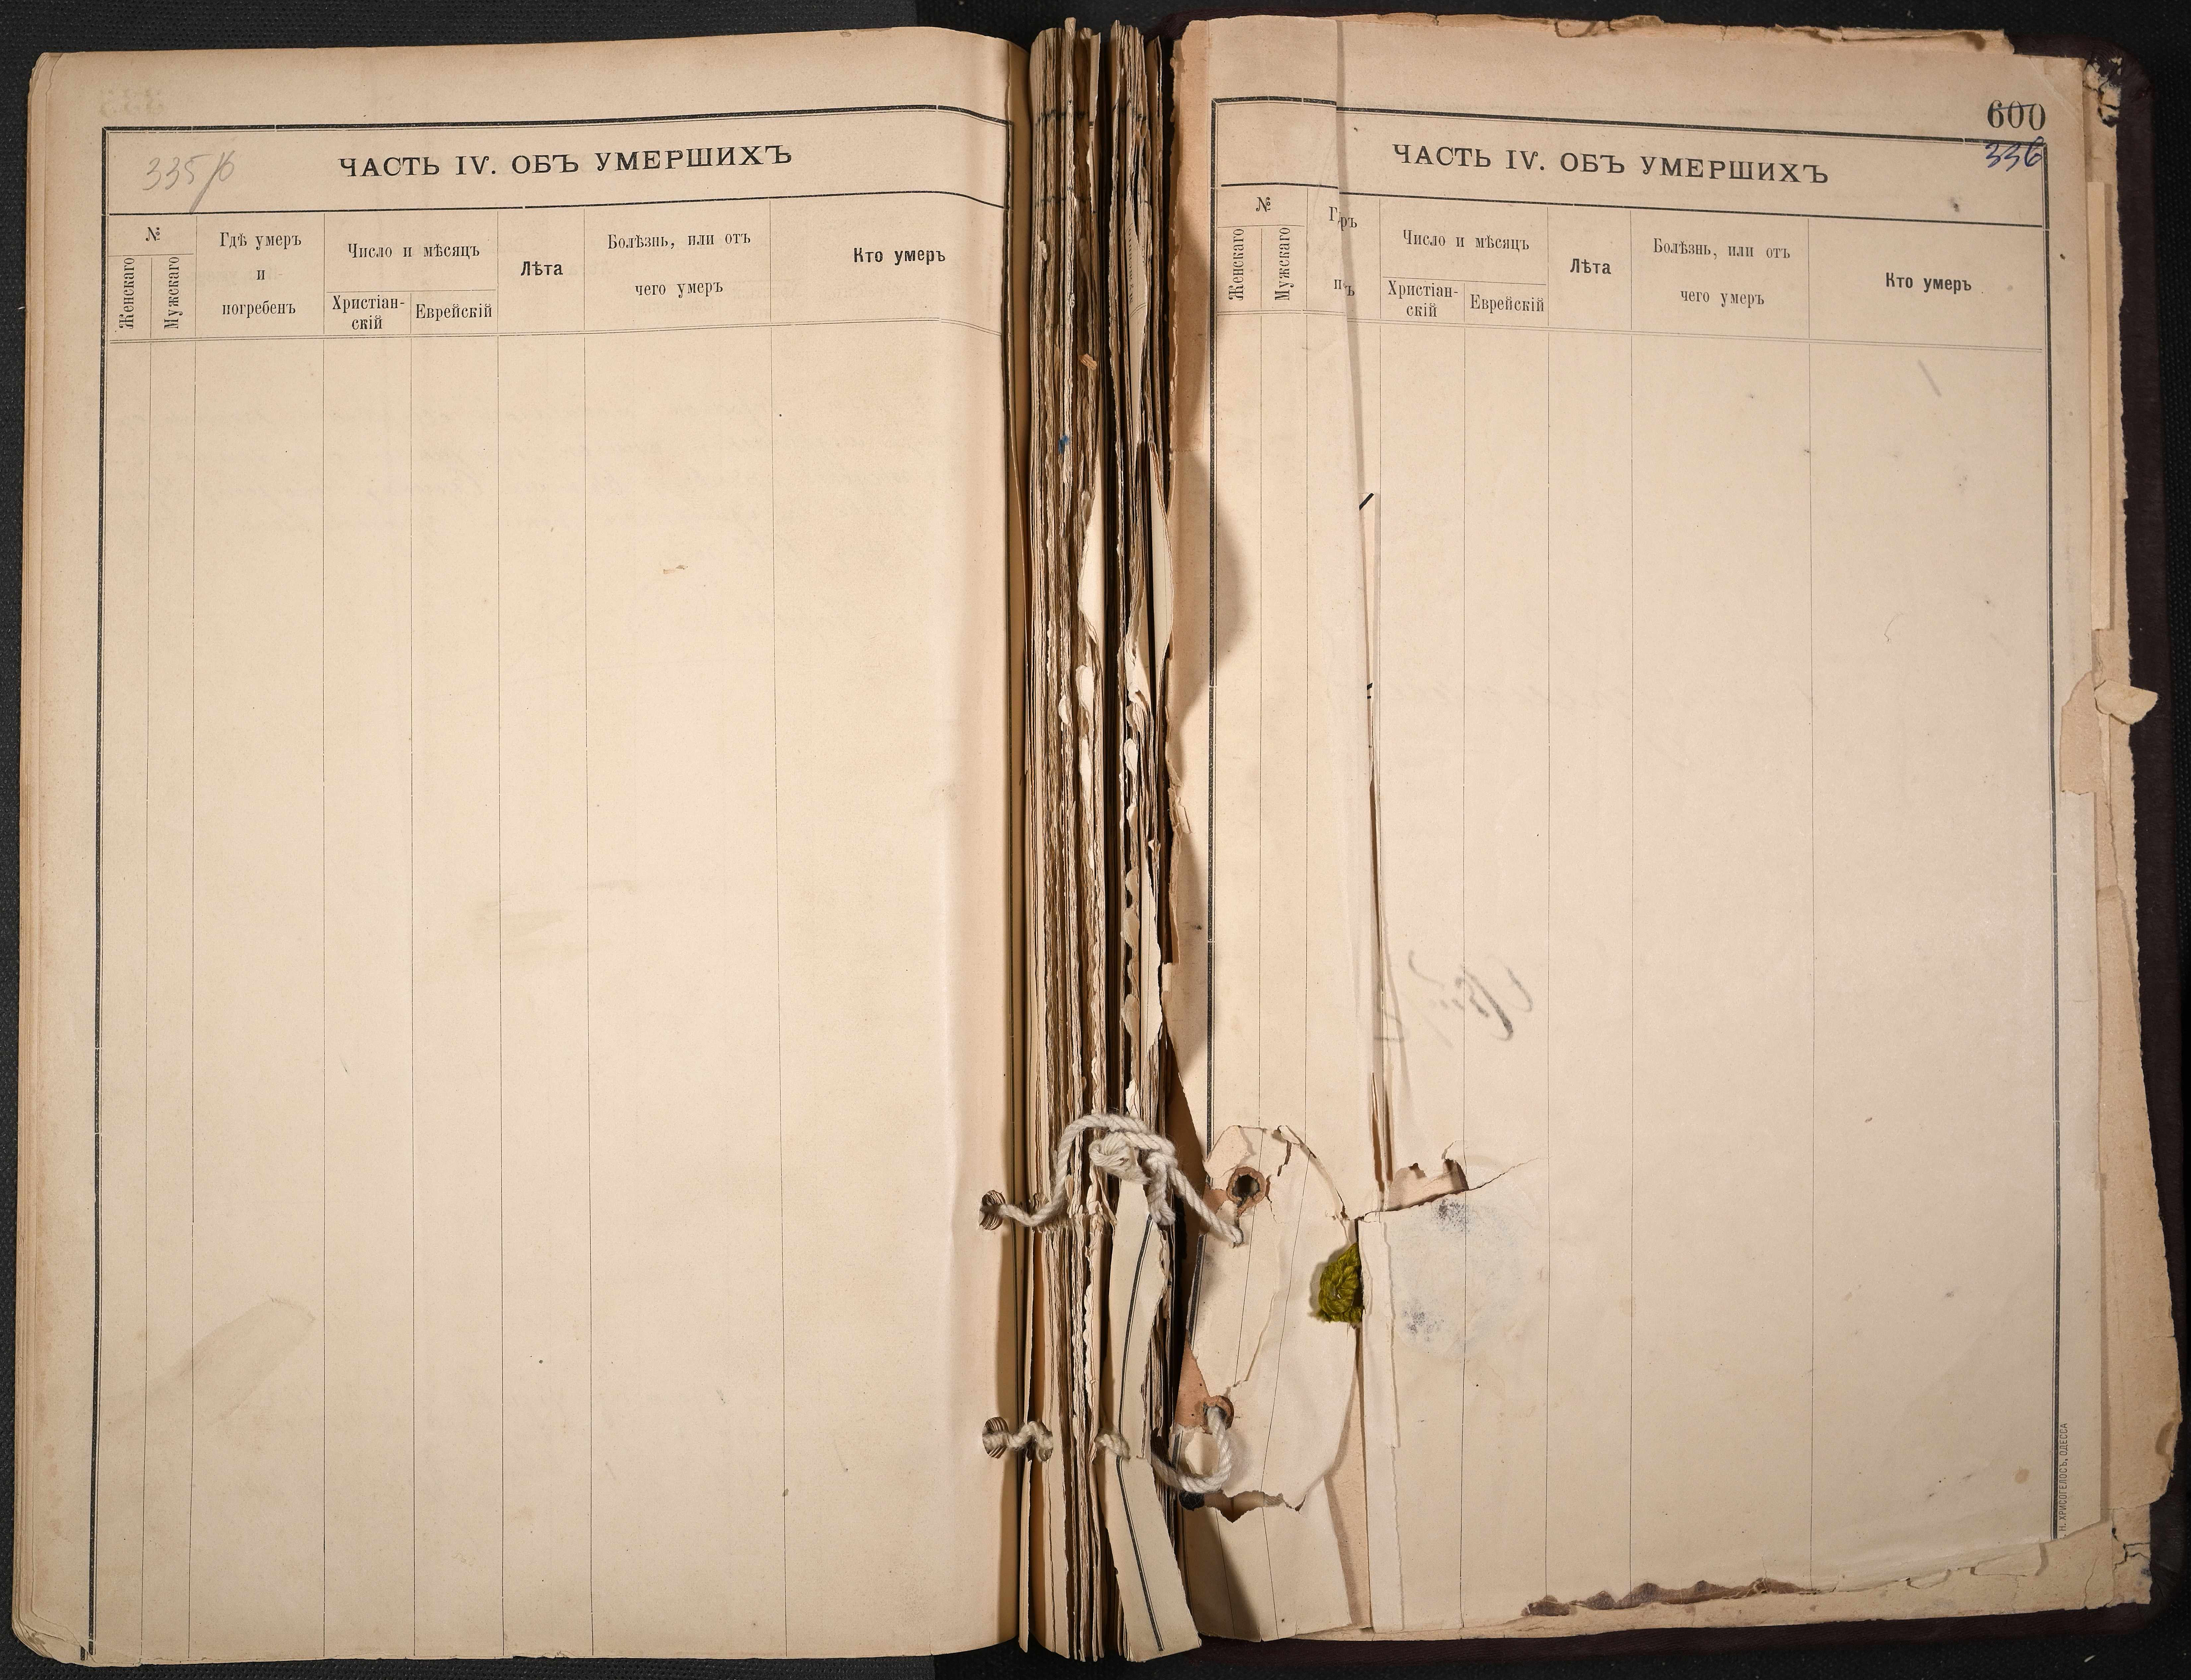 335/б
ЧАСТЬ IV. ОБЪ УМЕРШИХЪ
№
Женскаго
Мужскаго
Гдѣ умеръ
и
погребенъ
Число и мѣсяцъ
Христіан-
скій
Еврейскій
Лѣта
Болѣзнь, или отъ
чего умеръ
Кто умеръ
600
336
ЧАСТЬ IV. ОБЪ УМЕРШИХЪ
№
Женскаго
Мужскаго
Число и мѣсяцъ
Христіан-
скій
Еврейскій
Лѣта
Болѣзнь, или отъ
чего умеръ
Кто умеръ
Н. ХРИСОГЕЛОСЪ, ОДЕССА